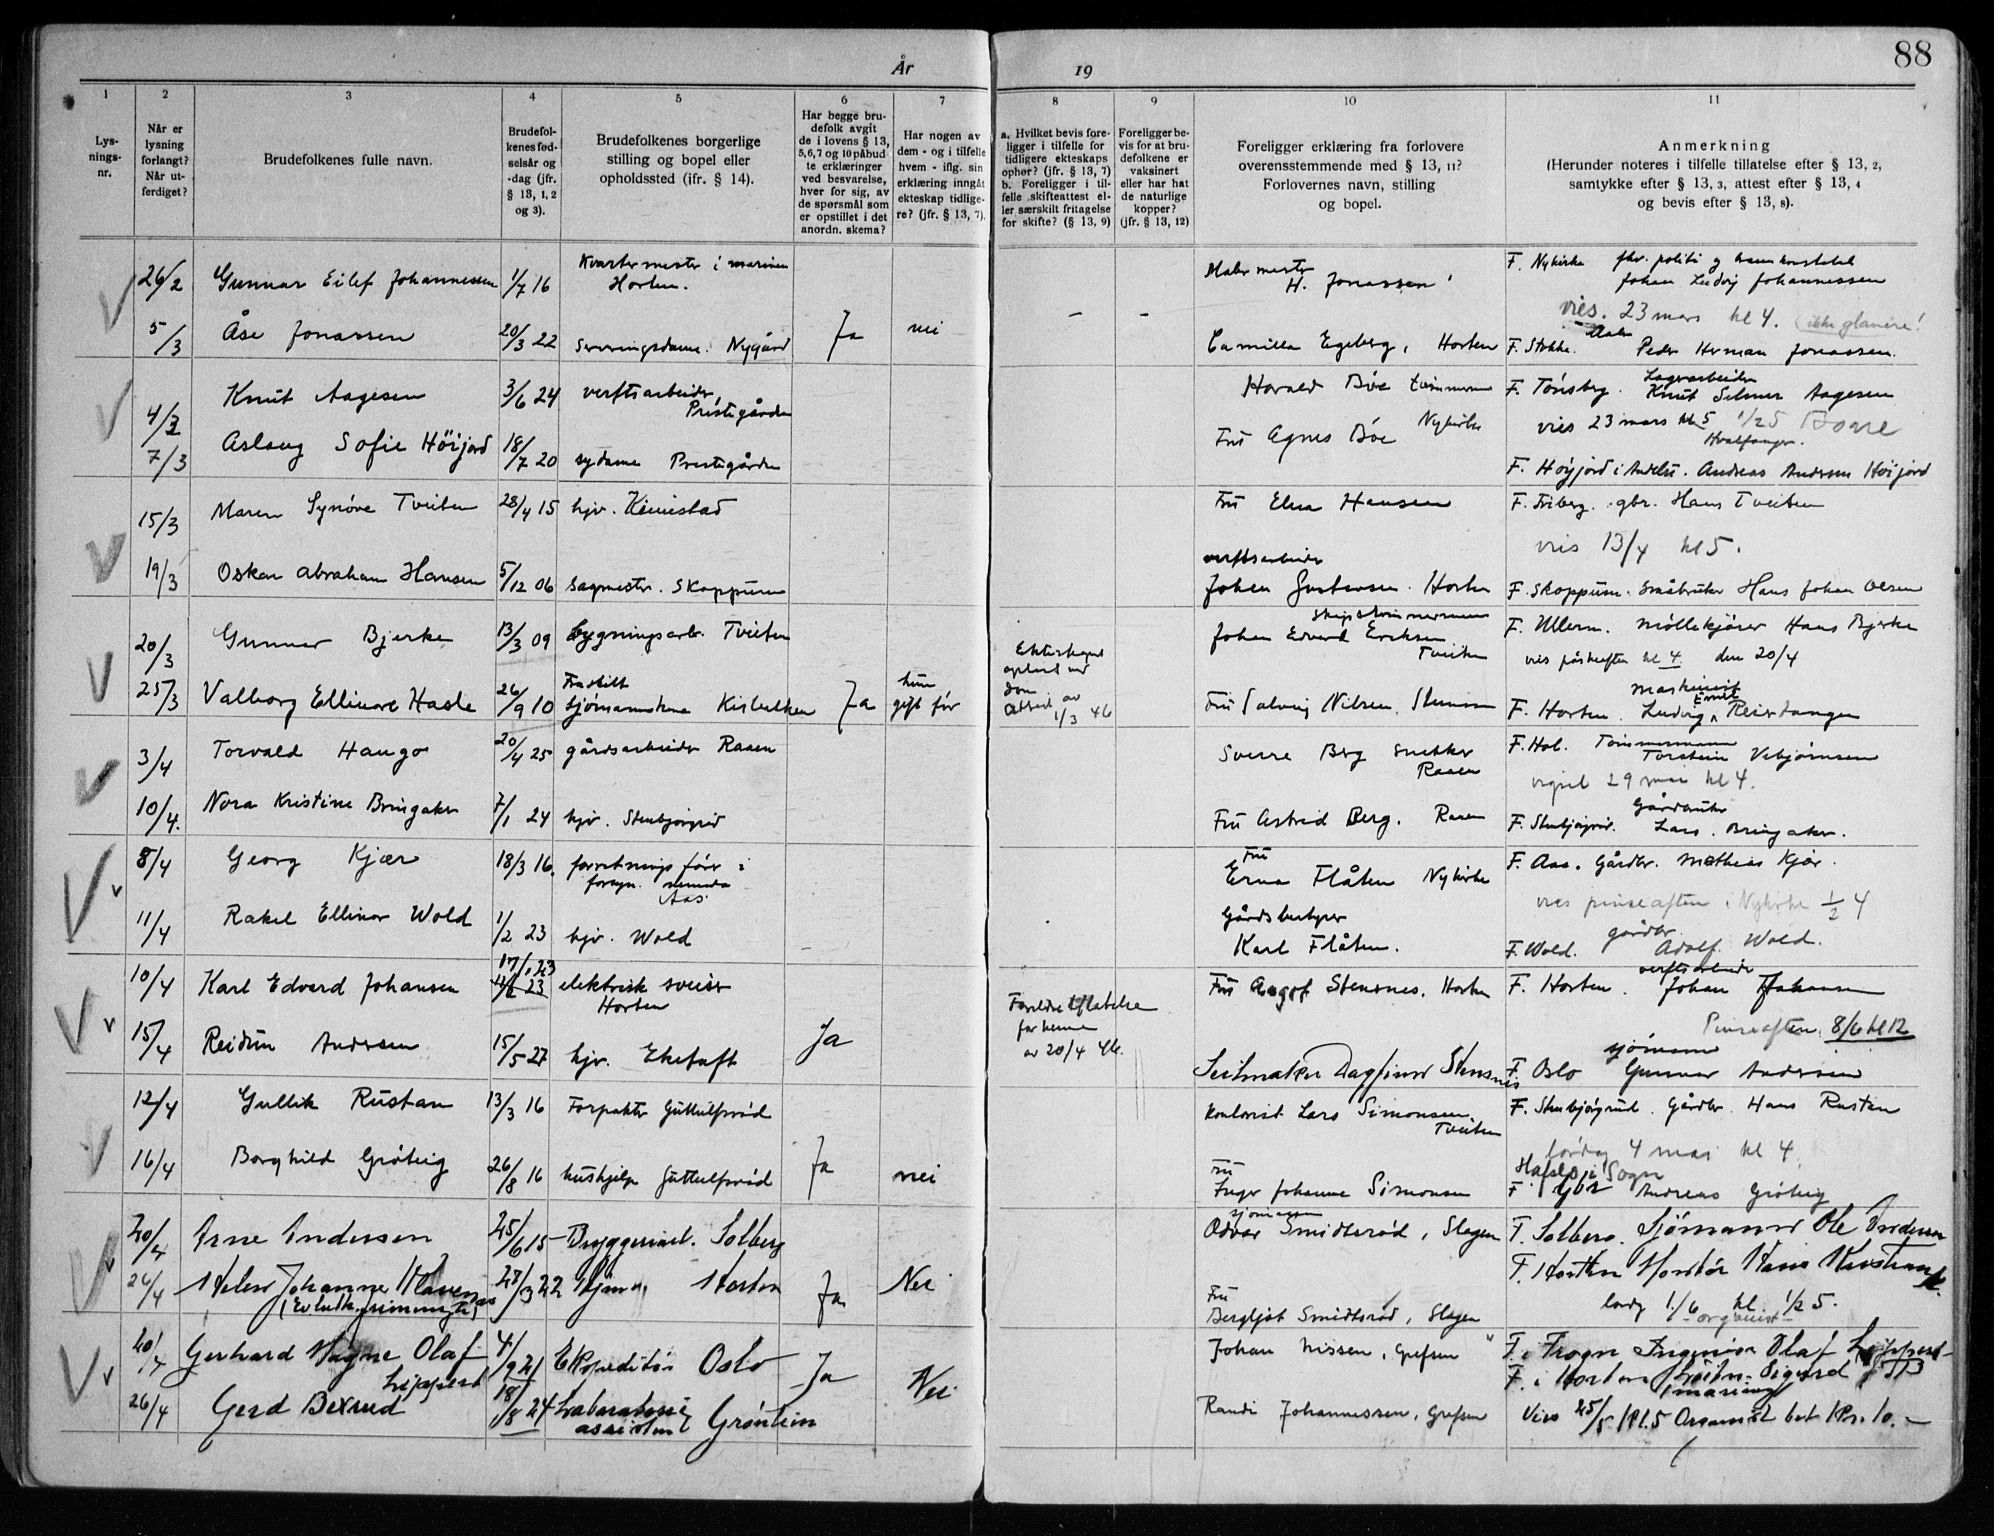 88
År 19
1 2 3 4 5 6 7 8 9 10 11
Lys-
nings-
nr.
Når er
lysning
forlangt?
Når ut-
ferdiget?
Brudefolkenes fulle navn.
Brudefol-
kenes fød-
selsår og
-dag (jfr.
§ 13, 1, 2
og 3).
Brudefolkenes borgerlige
stilling og bopel eller
opholdssted (ifr. § 14).
Har begge bru-
defolk avgit
de i lovens § 13,
5, 6, 7 og 10 påbud-
te erklæringer
ved besvarelse,
hver for sig, av
de spørsmål som
er opstillet i det
anordn. skema?
Har nogen av
dem - og i tilfelle
hvem - iflg. sin
erklæring inngått
ekteskap tidlige-
re? (jfr. § 13, 7).
a. Hvilket bevis fore-
ligger i tilfelle for
tidligere ekteskaps
ophør? (jfr. § 13, 7)
b. Foreligger i til-
felle skifteattest el-
ler særskilt fritagelse
for skifte? (§ 13, 9)
Foreligger be-
vis for at bru-
defolkene er
vaksinert
eller har hat
de naturlige
kopper?
(jfr. § 13, 12)
Foreligger erklæring fra forlovere
overensstemmende med § 13, 11?
Forlovernes navn, stilling
og bopel.
Anmerkning
(Herunder noteres i tilfelle tillatelse efter § 13, 2,
samtykke efter § 13, 3, attest efter § 13, 4
og bevis efter § 13, 8).
26/2 Gunnar Eilef Johannessen 1/7 16 Kvartermester i marinen Horten. Malermester H. Jonassen F. Nykirke fhv. politi og havnekonstabel Johan Ludvig Johannessen
vies. 23 mars kl 4. (ikke glanere!
5/3 Åse Jonassen 20/3 22 Serveringsdame. Nygård Ja nei - - Camilla Egeberg, Horten F. Stokke. Peder Herman Jonassen.
4/3 Knut Aagesen 3/6 24 verftsarbeider, Prestegården Harald Bøe tømmermann Nykirke F. Tönsberg. Lagerarbeider Knut Selmer Aagesen
vies 23 mars kl 5 1/2 5 Borre
7/3 Aslaug Sofie Höijord 18/7 20 sydame Prestegården Fru Agnes Bøe Hvalfanger. F. Höyjord i Andebu. Andreas Andersen Höijord
15/3 Maren Synøve Tveiten 28/4 15 hjv. Kinnestad Fru Elna Hansen F. Friberg. gbr. Hans Tveiten
vies 13/4 kl 5.
19/3 Oskar Abraham Hansen 5/12 06 sagmester. Skoppum verftsarbeider Johan Gustavsen. Horten F. Skoppum. småbruker Hans Johan Olsen
20/3 Gunnar Bjerke 13/3 09 bygningsarb. Tveiten Johan Edvard Eriksen skipstømmermann Tveiten F. Ullern. Möllekjører Hans Bjerke
vies påskeaften kl 4. den 20/4
25/3 Valborg Ellinore Hasle 26/9 10 Fraskilt sjømannskone Kirkebakken Ja hun gift før Ekteskapet opløst ved dom Attest av 1/3 46 Fru Solveig Nilsen, F. Horten. maskinist Ludvig Emil Reierstangen
3/4 Torvald Haugo 20/4 25 gårdsarbeider Raaen Sverre Berg snekker Raaen F. Hol. Tømmermann Torstein Vebjørnsen
vigsel 29 mai kl 4.
10/4. Nora Kristine Bringaker 7/1 24 hjv. Stenbjørgrød Fru Astrid Berg. Raaen F. Gårdbruker Lars Bringaker.
8/4 Georg Kjær 18/3 16. forretningsfører i forsyn. nemnda Aas. Fru Erna Flåten Nykirke F. Aas. Gårdbr. Mathias Kjær.
vies pinseaften i Nykirke 1/2 4
11/4 Rakel Ellinor Wold 1/2 23 hjv. Wold Gårdsbestyrer Karl Flåten. F. Wold. gårdbr. Adolf Wold.
10/4 Karl Edvard Johansen 17/1 23 elektrisk sveiser Horten Fru Aagot Stensnes. Horten F. Horten. verftsarbeider Johan Johansen
Pinseaften 8/6 kl 12
15/4 Reidun Andersen 15/5 27 hjv. Eketuft Ja Foreldretillatelse for henne av 20/4 46. Seilmaker Dagfinn Stensnes F. Oslo sjömann Gunnar Andersen
12/4 Gullik Rustan 13/3 16 Forpakter Guttulfsrød Kontorist Lars Simonsen. Tveiten F. Stenbjørgrud. Gårdbr. Hans Rustan
lördag 4 mai kl 4.
16/4 Borghild Grøteig 26/8 16 hushjelp Guttulfsrød Ja nei Fru Inger Johanne Simonsen F. Hafslo i Sogn Gbr Andreas Grøteig
20/4 Arne Andersen 25/6 15 Bryggeriarb. Solberg sjømann Odvar Smidtsrød, Slagen F. Solberg. Sjömann Ole Andersen
26/4 Helene Johanne 28/3 22 Hjem. Horten Ja Nei Fru Bergljot Smidtsrød, Slagen F. Horten Montör Hans Kristian
lørdg 1/6 kl. 1/2 5.
20/4 Gerhard Magne Olaf Lippert 4/9 21 Ekspeditör Oslo Ja Nei Johan Nissen, Grefsen F. i Frogn Ingeniör Olaf Lippert
26/4 Gerd Bexrud 18/8 24 Laboratorieassistent Grønlein Randi Johannessen, Grefsen F. i Horten Sigurd
Vies 25/5 kl. 5 Organist bet Kr. 10.-